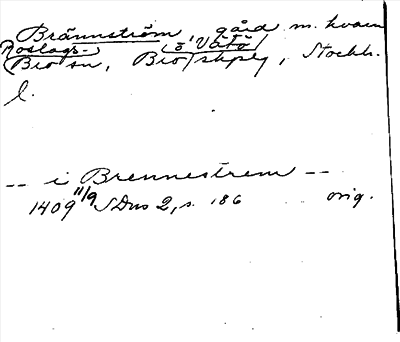 Brännström gård m. kvarn
Roslags- o. Vätö
Bro sn, Bro skplg, Stockh.
l.
-- i Brennestrem --
1409 11/9 SDns 2, s. 186 orig.